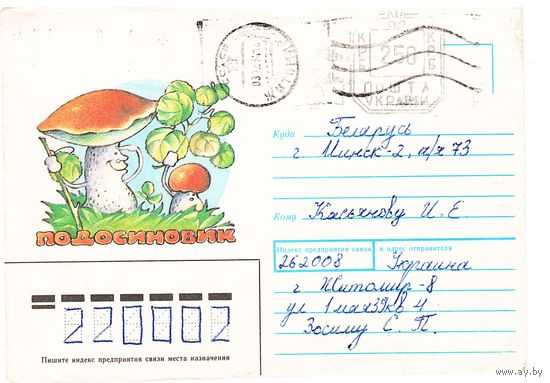 250
ПОШТА
УКРАЇНИ
Куда Беларусь
г Минск-2, а/я 73
Кому Касьянову И. Е
ПОДОСИНОВИК
Индекс предприятия связи и адрес отправителя
262008 Украина
г Житомир-8
ул 1 мая 39 кв 4
Зосиму С. П.
220002
Пишите индекс предприятия связи места назначения
www.ay.by